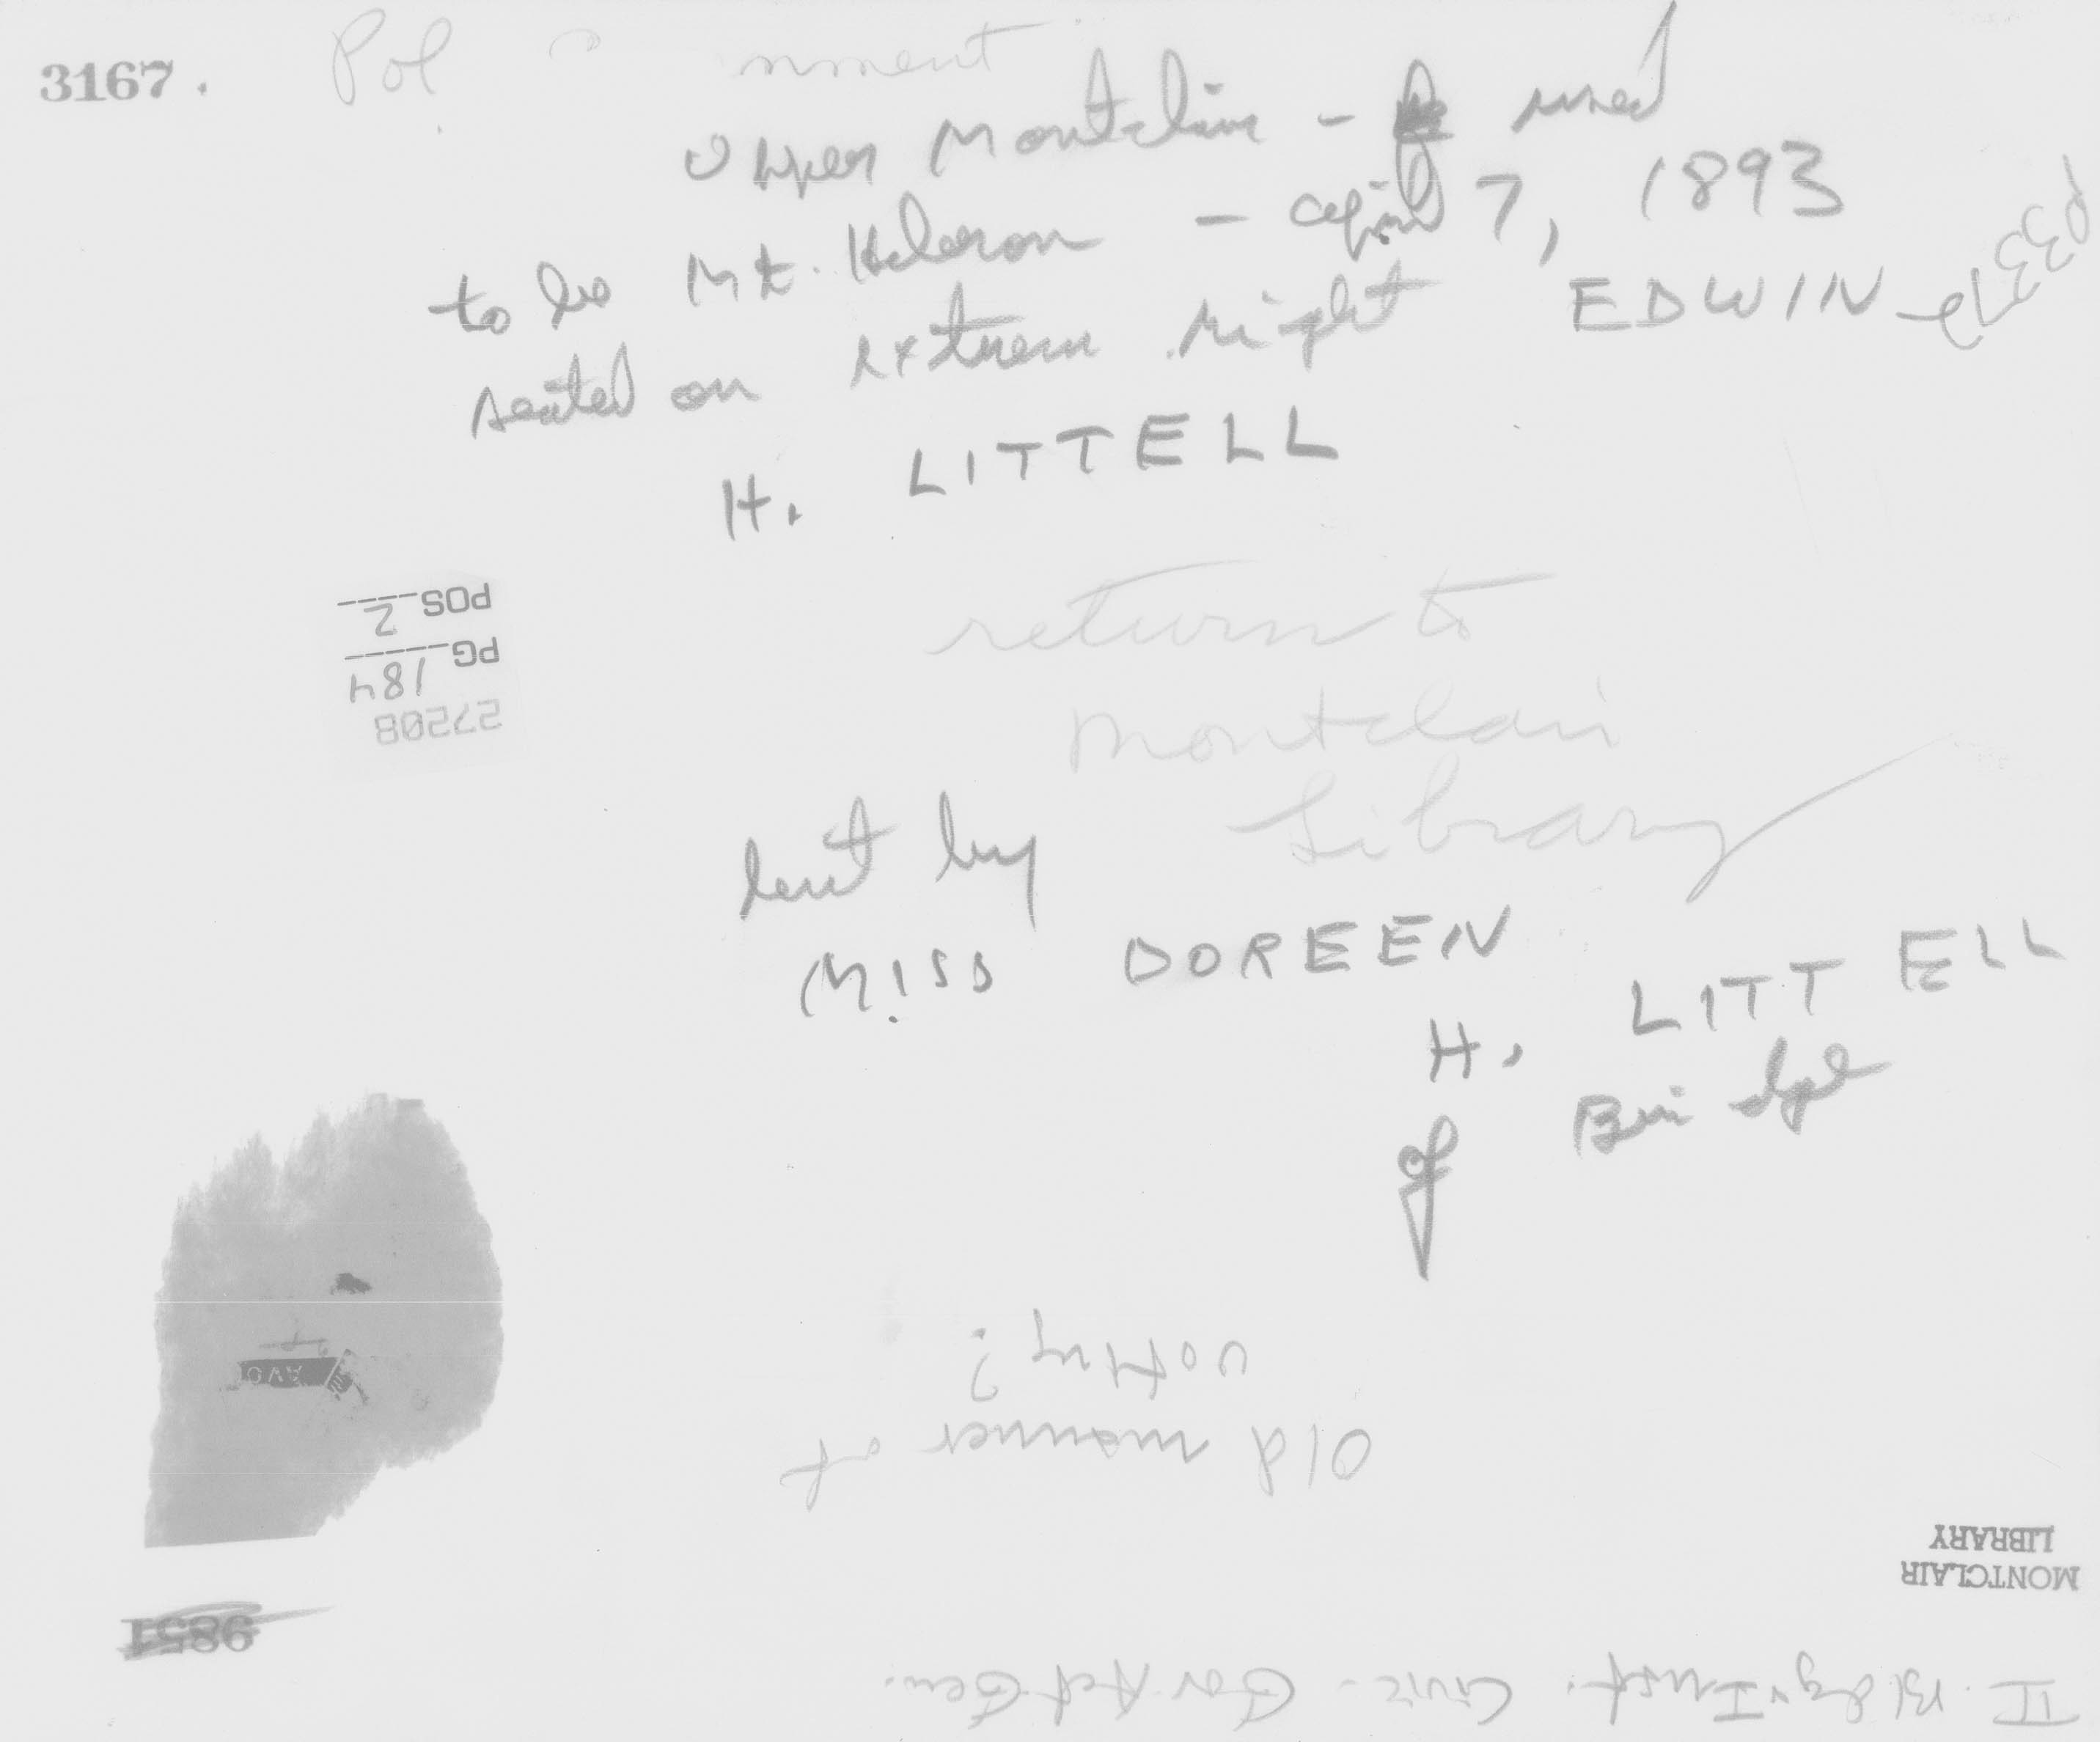 3167.
Pol nment
Upper Montclair - used
to be Mt. Hebron - April 7, 1893
seated on extreme right EDWIN
H. LITTELL
POS 2
PG 184
27208
return to
Montclair
Library
lent by
MISS DOREEN
H. LITTELL
of
Old manner of
voting?
MONTCLAIR
LIBRARY
9851
II. Bldg. Inst. Civic - Gov Act Gen.